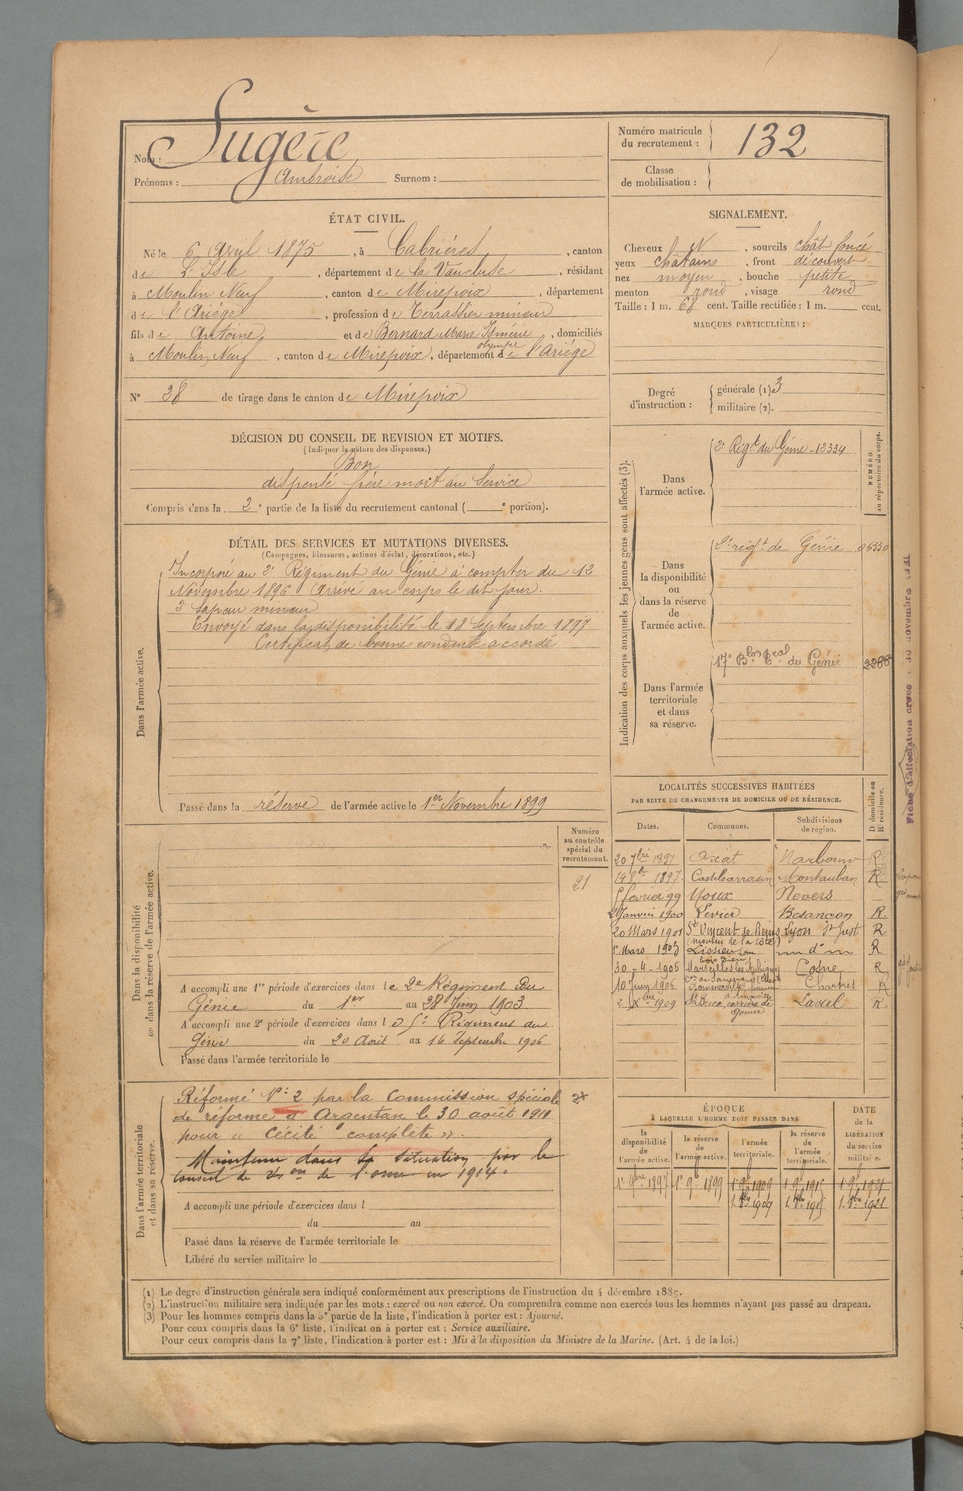 Nom : Sugère
Prénoms : Ambroise Surnom :
Numéro matricule du recrutement : 132
Classe de mobilisation :
ÉTAT CIVIL.
Né le 6 Avril 1875, à Cabrières, canton
de L'Isle, département de la Vaucluse, résidant
à Moulin Neuf, canton de Mirepoix, département
de l'Ariège, profession de Terrassier mineur
fils de Antoine et de Bernard Marie olympe, domiciliés
à Moulin Neuf, canton de Mirepoix, département de l'Ariège
N° 28 de tirage dans le canton de Mirepoix
SIGNALEMENT.
Cheveux N, sourcils chât foncé
yeux chatains, front découvert
nez moyen, bouche petite
menton rond, visage rond
Taille : 1 m. 68 cent. Taille rectifiée : 1 m. cent.
MARQUES PARTICULIÈRES :
Degré d'instruction :
générale (1) 3
militaire (2).
DÉCISION DU CONSEIL DE REVISION ET MOTIFS.
(Indiquer la nature des dispenses.)
Bon
dispensé frère mort au Service
Compris dans la 2e partie de la liste du recrutement cantonal ( e portion).
DÉTAIL DES SERVICES ET MUTATIONS DIVERSES.
(Campagnes, blessures, actions d'éclat, décorations, etc.)
Dans l'armée active.
Incorporé au 2e Régiment du Génie à compter du 12
Novembre 1896 Arrivé au corps le dit jour.
Sapeur mineur
Envoyé dans la disponibilité le 18 Septembre 1897
Certificat de bonne conduite accordé
Passé dans la réserve de l'armée active le 1er Novembre 1899
Indication des corps auxquels les jeunes gens sont affectés (3).
NUMÉRO au répertoire du corps.
Dans l'armée active.
2e Régt du Génie - 12334
Dans la disponibilité ou dans la réserve de l'armée active.
régt de Génie
Dans l'armée territoriale et dans sa réserve.
17e du Génie
Numéro au contrôle spécial du recrutement.
21
Dans la disponibilité ou dans la réserve de l'armée active.
A accompli une 1re période d'exercices dans le 2e Régiment du
Génie du 1er au 28 Juin 1903
A accompli une 2e période d'exercices dans l Régiment du
Génie du 20 Août au 16 Septembre 1906
Passé dans l'armée territoriale le
LOCALITÉS SUCCESSIVES HABITÉES
PAR SUITE DE CHANGEMENTS DE DOMICILE OU DE RÉSIDENCE.
Dates. Communes. Subdivisions de région. D domicile ou R résidence.
20 7bre 1897 Axat Narbonne R
1897 Castelsarrasin Montauban R
février 99 Youx Nevers
Janvier 1900 Levier Besançon R
20 Mars 1901 St Vincent de Reins Lyon R
Mars 1903 R
30-4-1906 Marseilles les Aubigny Cosne R
10 Juin 1906 Chartres R
1909 St Brice, carrière de Laval R
Dans l'armée territoriale et dans sa réserve.
Réformé N° 2 par la Commission spéciale
de réforme d'Argentan le 30 août 1911
pour « Cécité complète ».
Maintenu dans sa situation par le
Conseil de de l'orne en 1914.
A accompli une période d'exercices dans l
du au
Passé dans la réserve de l'armée territoriale le
Libéré du service militaire le
ÉPOQUE
À LAQUELLE L'HOMME DOIT PASSER DANS
la disponibilité de l'armée active. la réserve de l'armée active. l'armée territoriale. la réserve de l'armée territoriale.
DATE de la LIBÉRATION du service militaire.
1er 9bre 1897 1er 9b 1899 1er 9b 1909 1er 9b 1915 1er 9b 1921
1909 1915 1921
(1) Le degré d'instruction générale sera indiqué conformément aux prescriptions de l'instruction du 4 décembre 1889.
(2) L'instruction militaire sera indiquée par les mots : exercé ou non exercé. On comprendra comme non exercés tous les hommes n'ayant pas passé au drapeau.
(3) Pour les hommes compris dans la 5e partie de la liste, l'indication à porter est : Ajourné.
Pour ceux compris dans la 6e liste, l'indication à porter est : Service auxiliaire.
Pour ceux compris dans la 7e liste, l'indication à porter est : Mis à la disposition du Ministre de la Marine. (Art. 4 de la loi.)